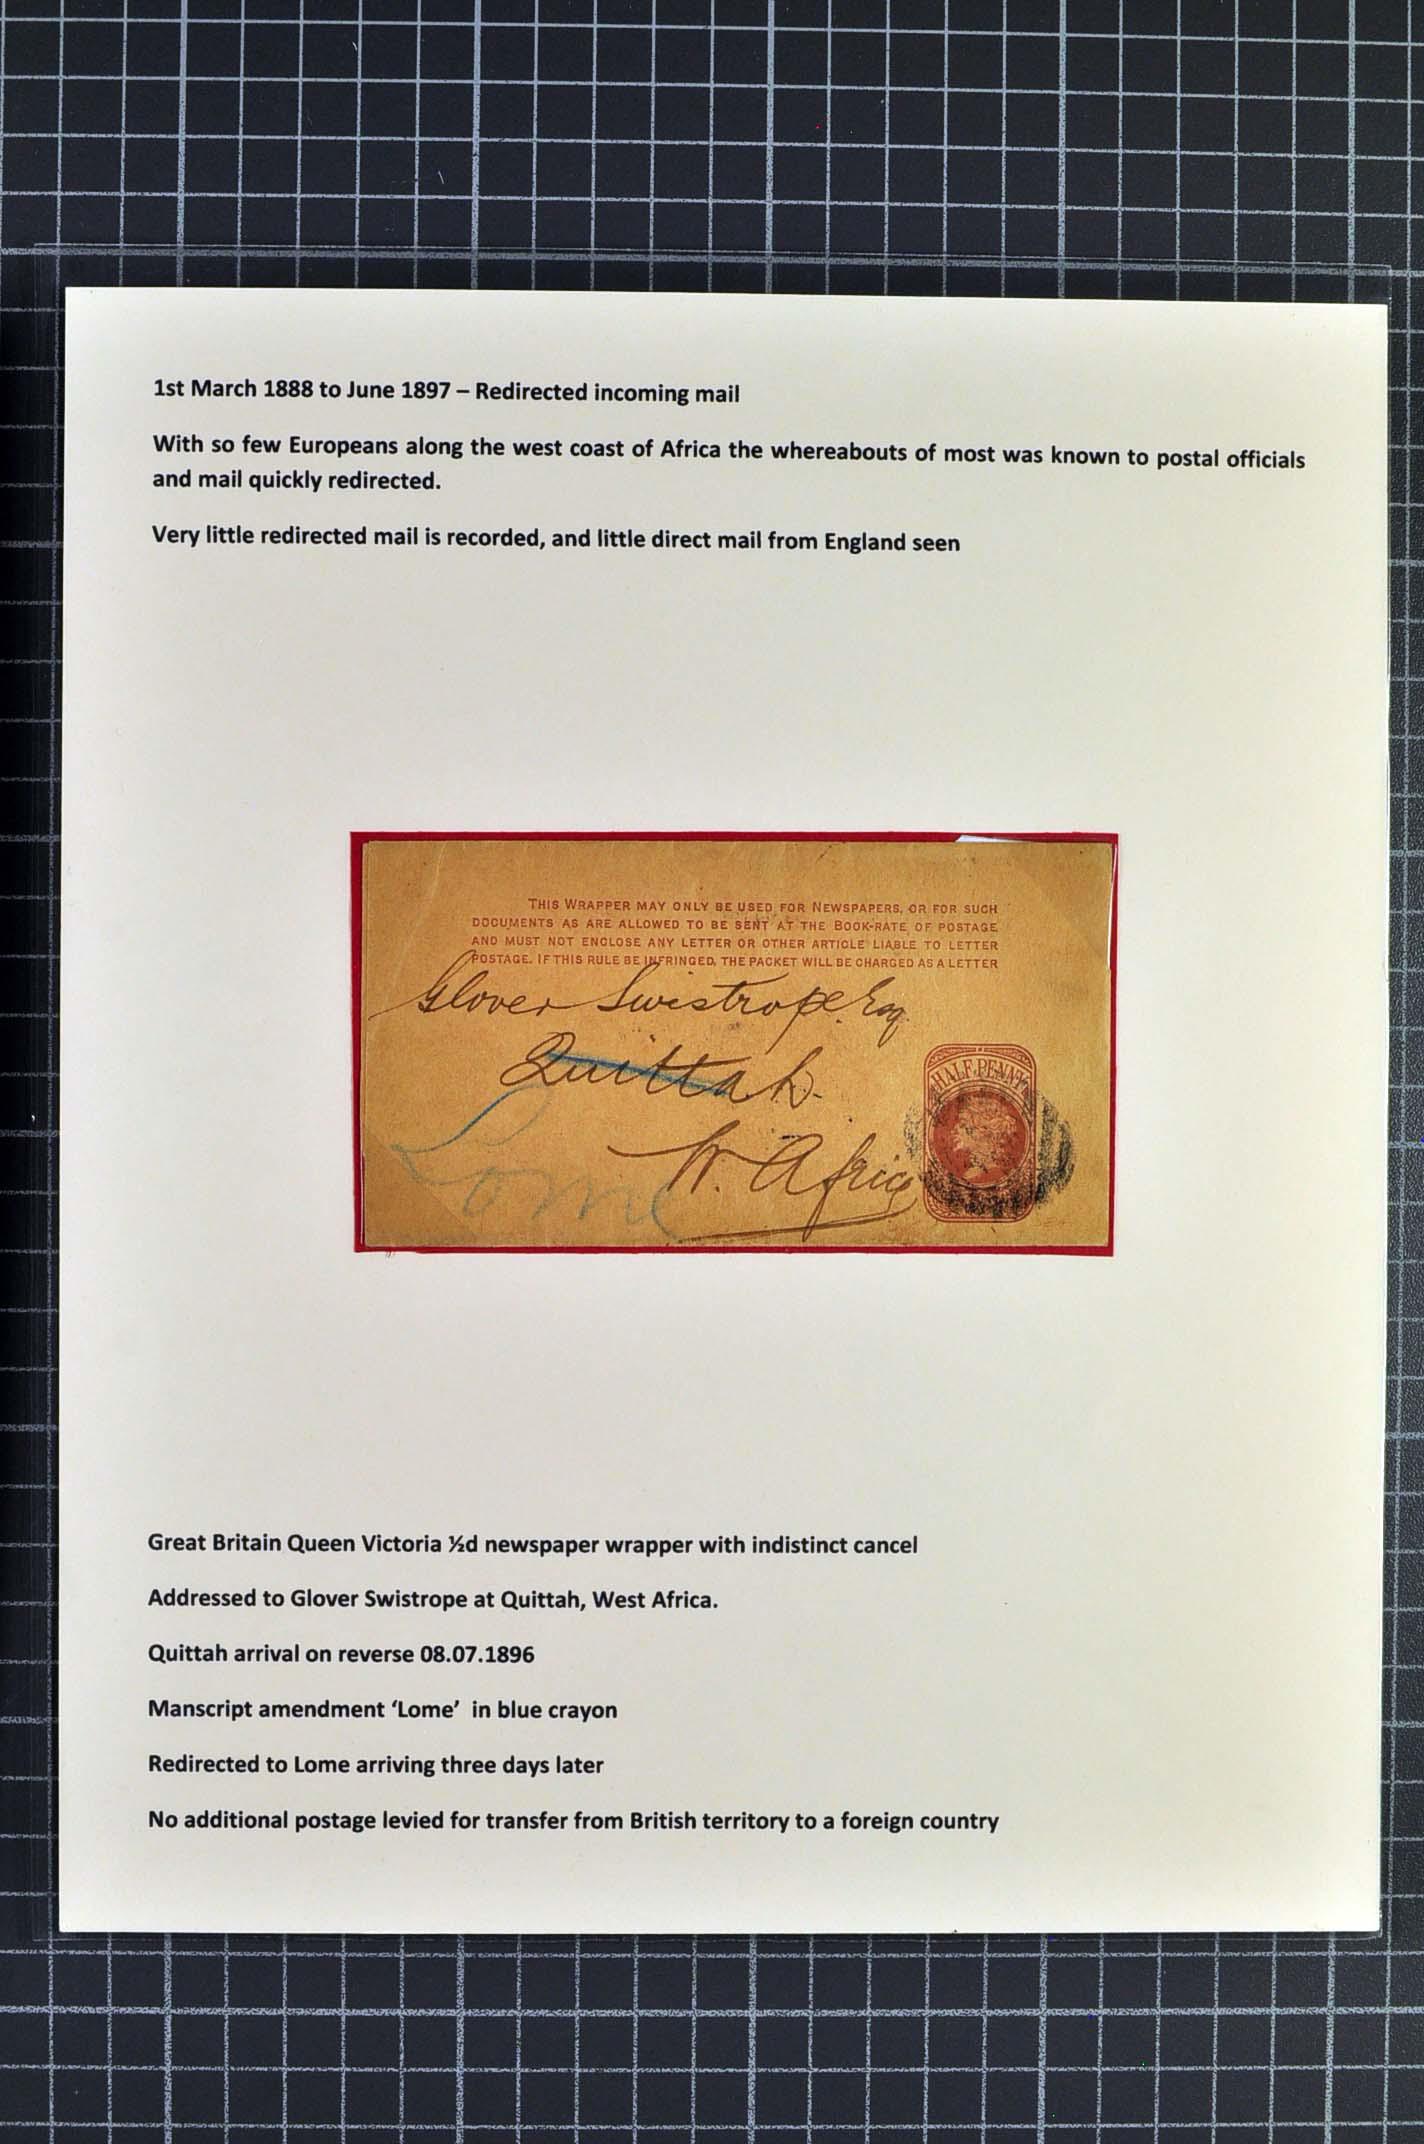 1st March 1888 to June 1897 – Redirected incoming mail
With so few Europeans along the west coast of Africa the whereabouts of most was known to postal officials
and mail quickly redirected.
Very little redirected mail is recorded, and little direct mail from England seen
THIS WRAPPER MAY ONLY BE USED FOR NEWSPAPERS, OR FOR SUCH
DOCUMENTS AS ARE ALLOWED TO BE SENT AT THE BOOK-RATE OF POSTAGE
AND MUST NOT ENCLOSE ANY LETTER OR OTHER ARTICLE LIABLE TO LETTER
POSTAGE. IF THIS RULE BE INFRINGED, THE PACKET WILL BE CHARGED AS A LETTER
Glover Swistrope Esq.
Quittah.
W. Africa
Lome
HALFPENNY
Great Britain Queen Victoria ½d newspaper wrapper with indistinct cancel
Addressed to Glover Swistrope at Quittah, West Africa.
Quittah arrival on reverse 08.07.1896
Manscript amendment ‘Lome’ in blue crayon
Redirected to Lome arriving three days later
No additional postage levied for transfer from British territory to a foreign country